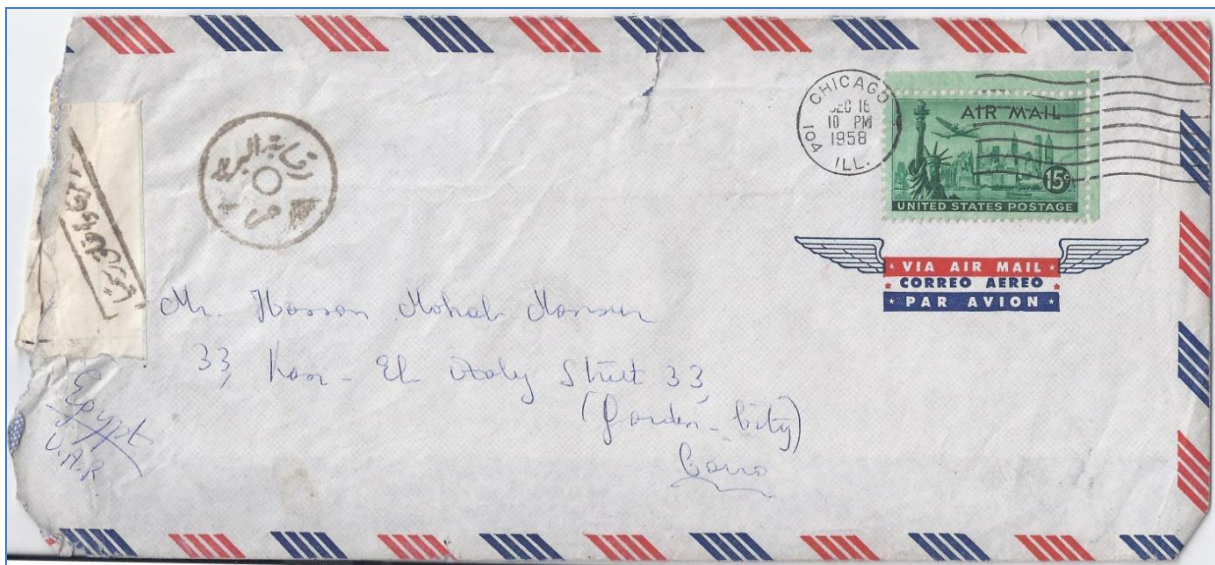 رقابة البريد
CHICAGO
DEC 16
10 PM
1958
104 ILL.
AIR MAIL
15¢
UNITED STATES POSTAGE
VIA AIR MAIL
CORREO AEREO
PAR AVION
Mr. Hassan Mohab Mansur
33, Kasr - El Aaly Street 33,
(Garden-City)
Cairo
Egypt
U.A.R